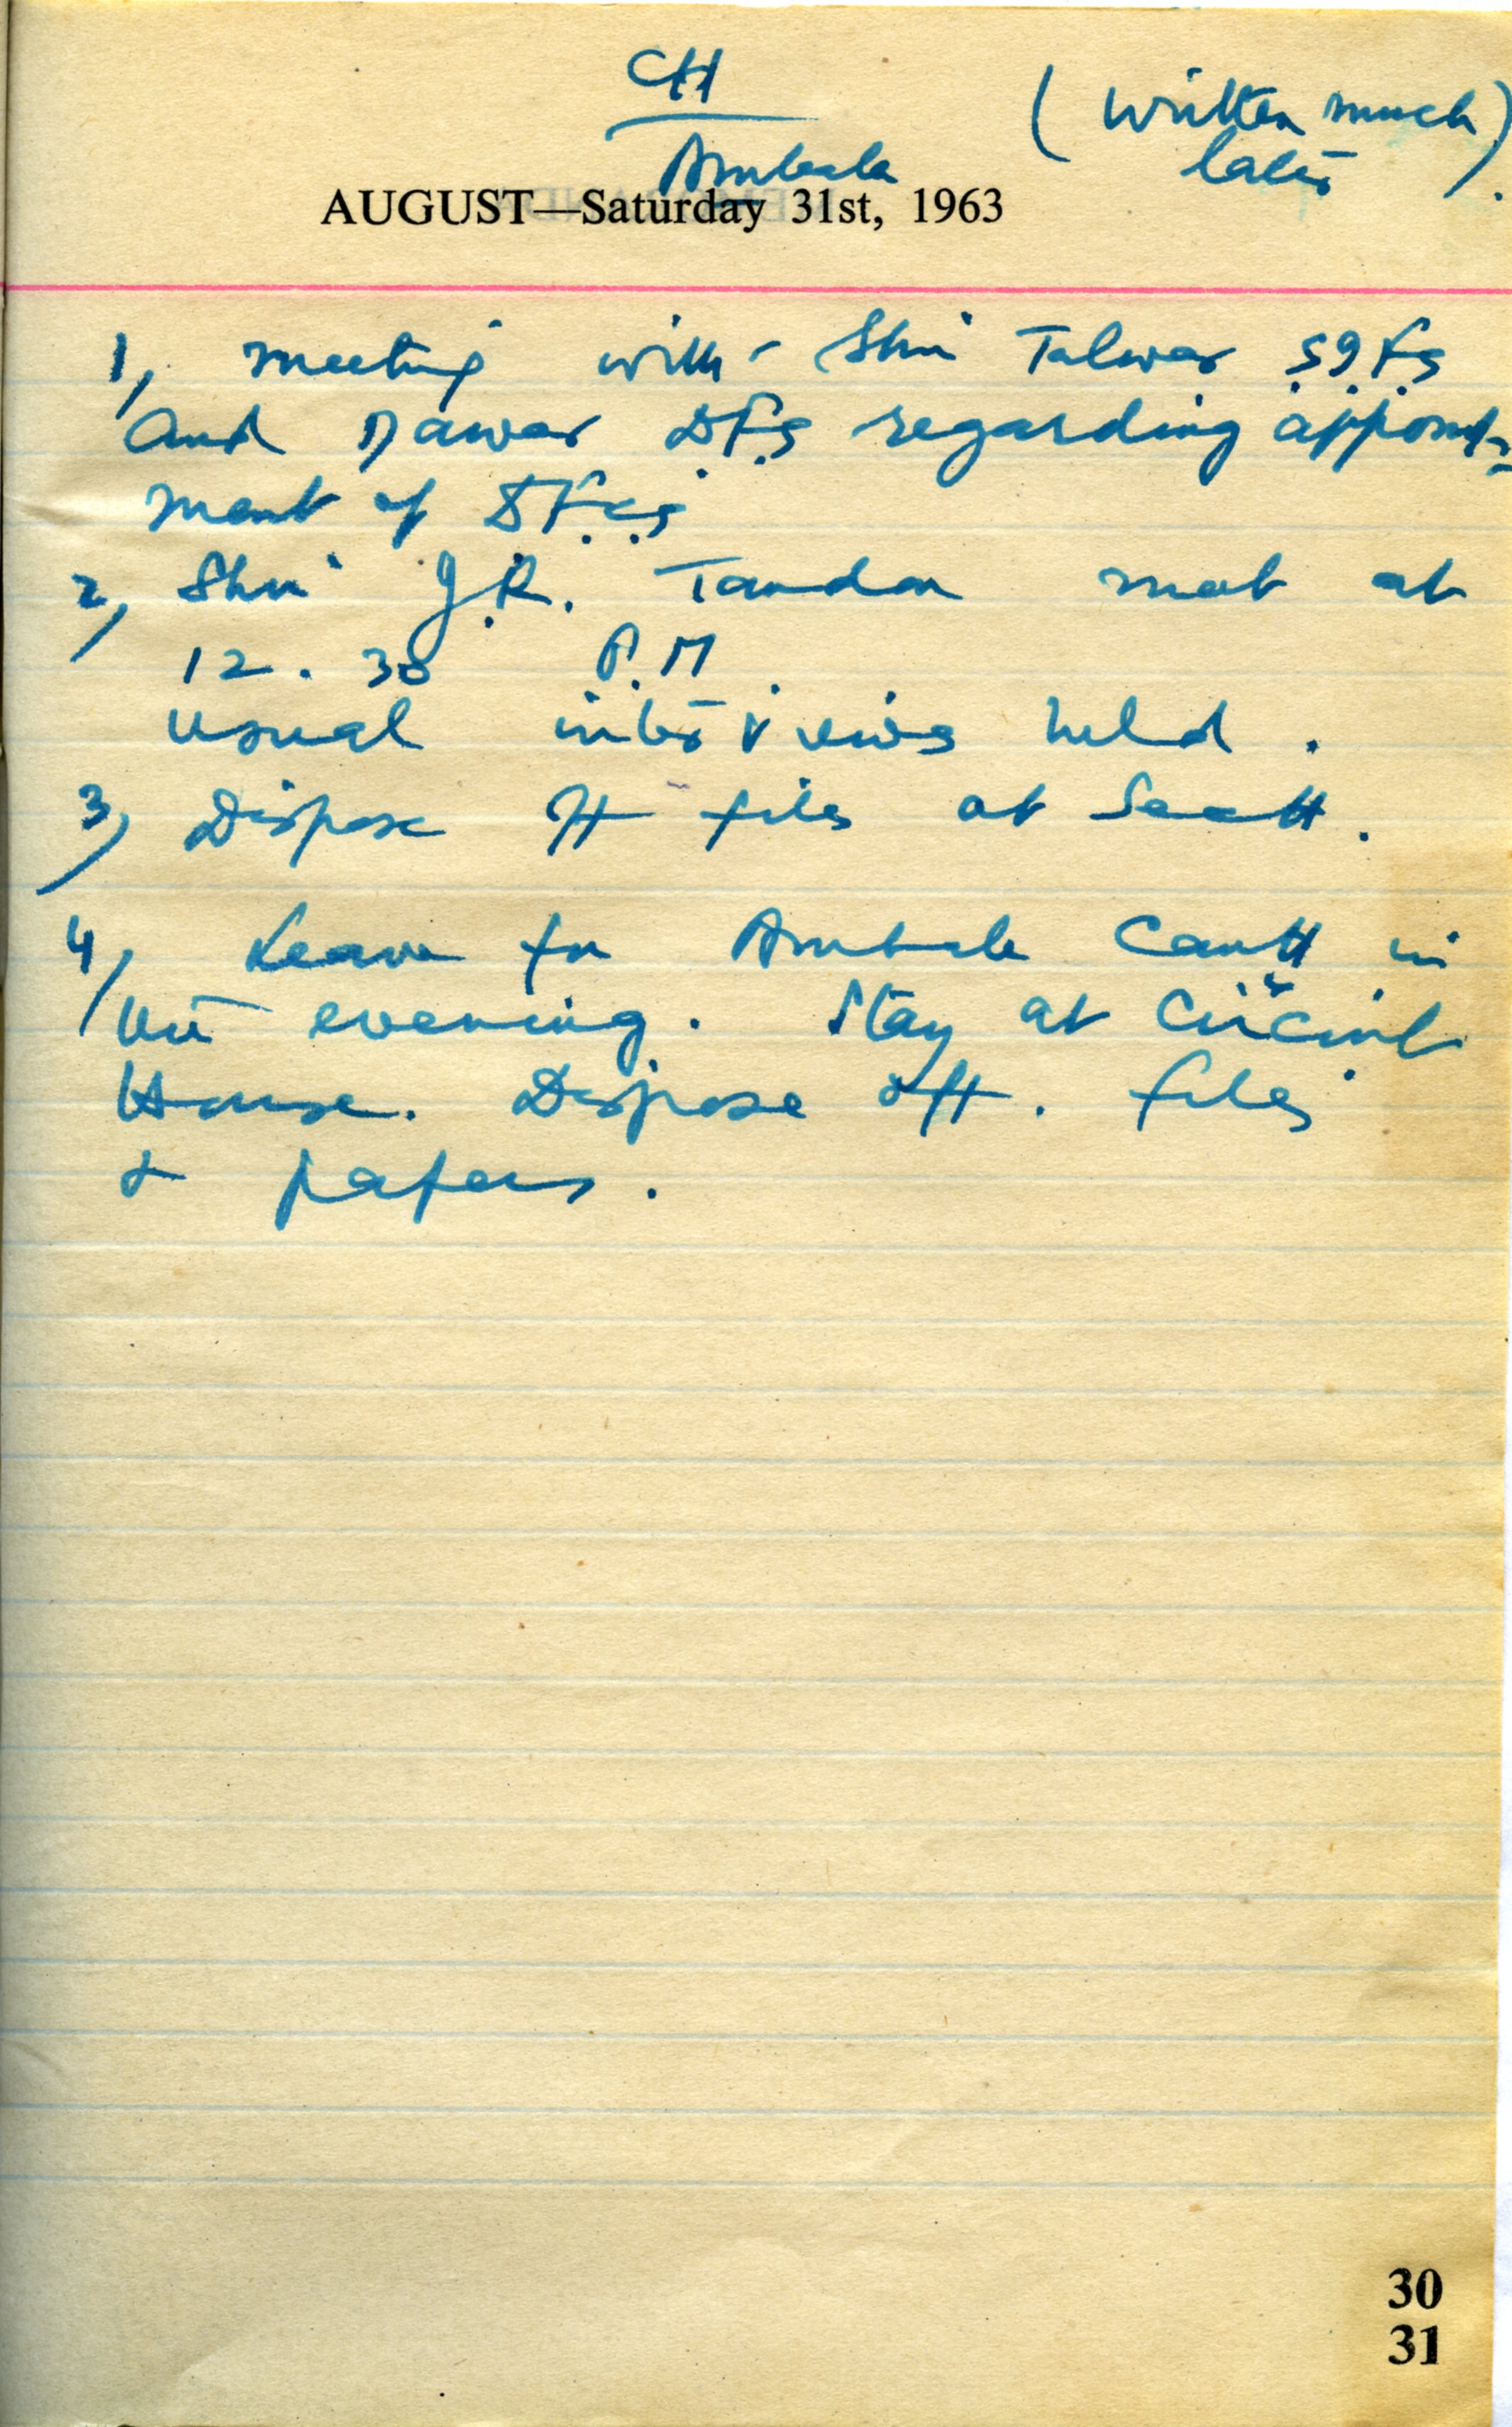 CH
Ambala
(Written much
later).
AUGUST—Saturday 31st, 1963
1, meeting with Shri Talwar
and Dawar D.F.S. regarding appoint-
ment of
2, Shri J.R. Tandon met at
12.30 P.M.
usual interviews held.
3, Dispose off files at Sectt.
4, Leave for Ambala Cantt in
the evening. Stay at Circuit
House. Dispose off. files
& papers.
30
31